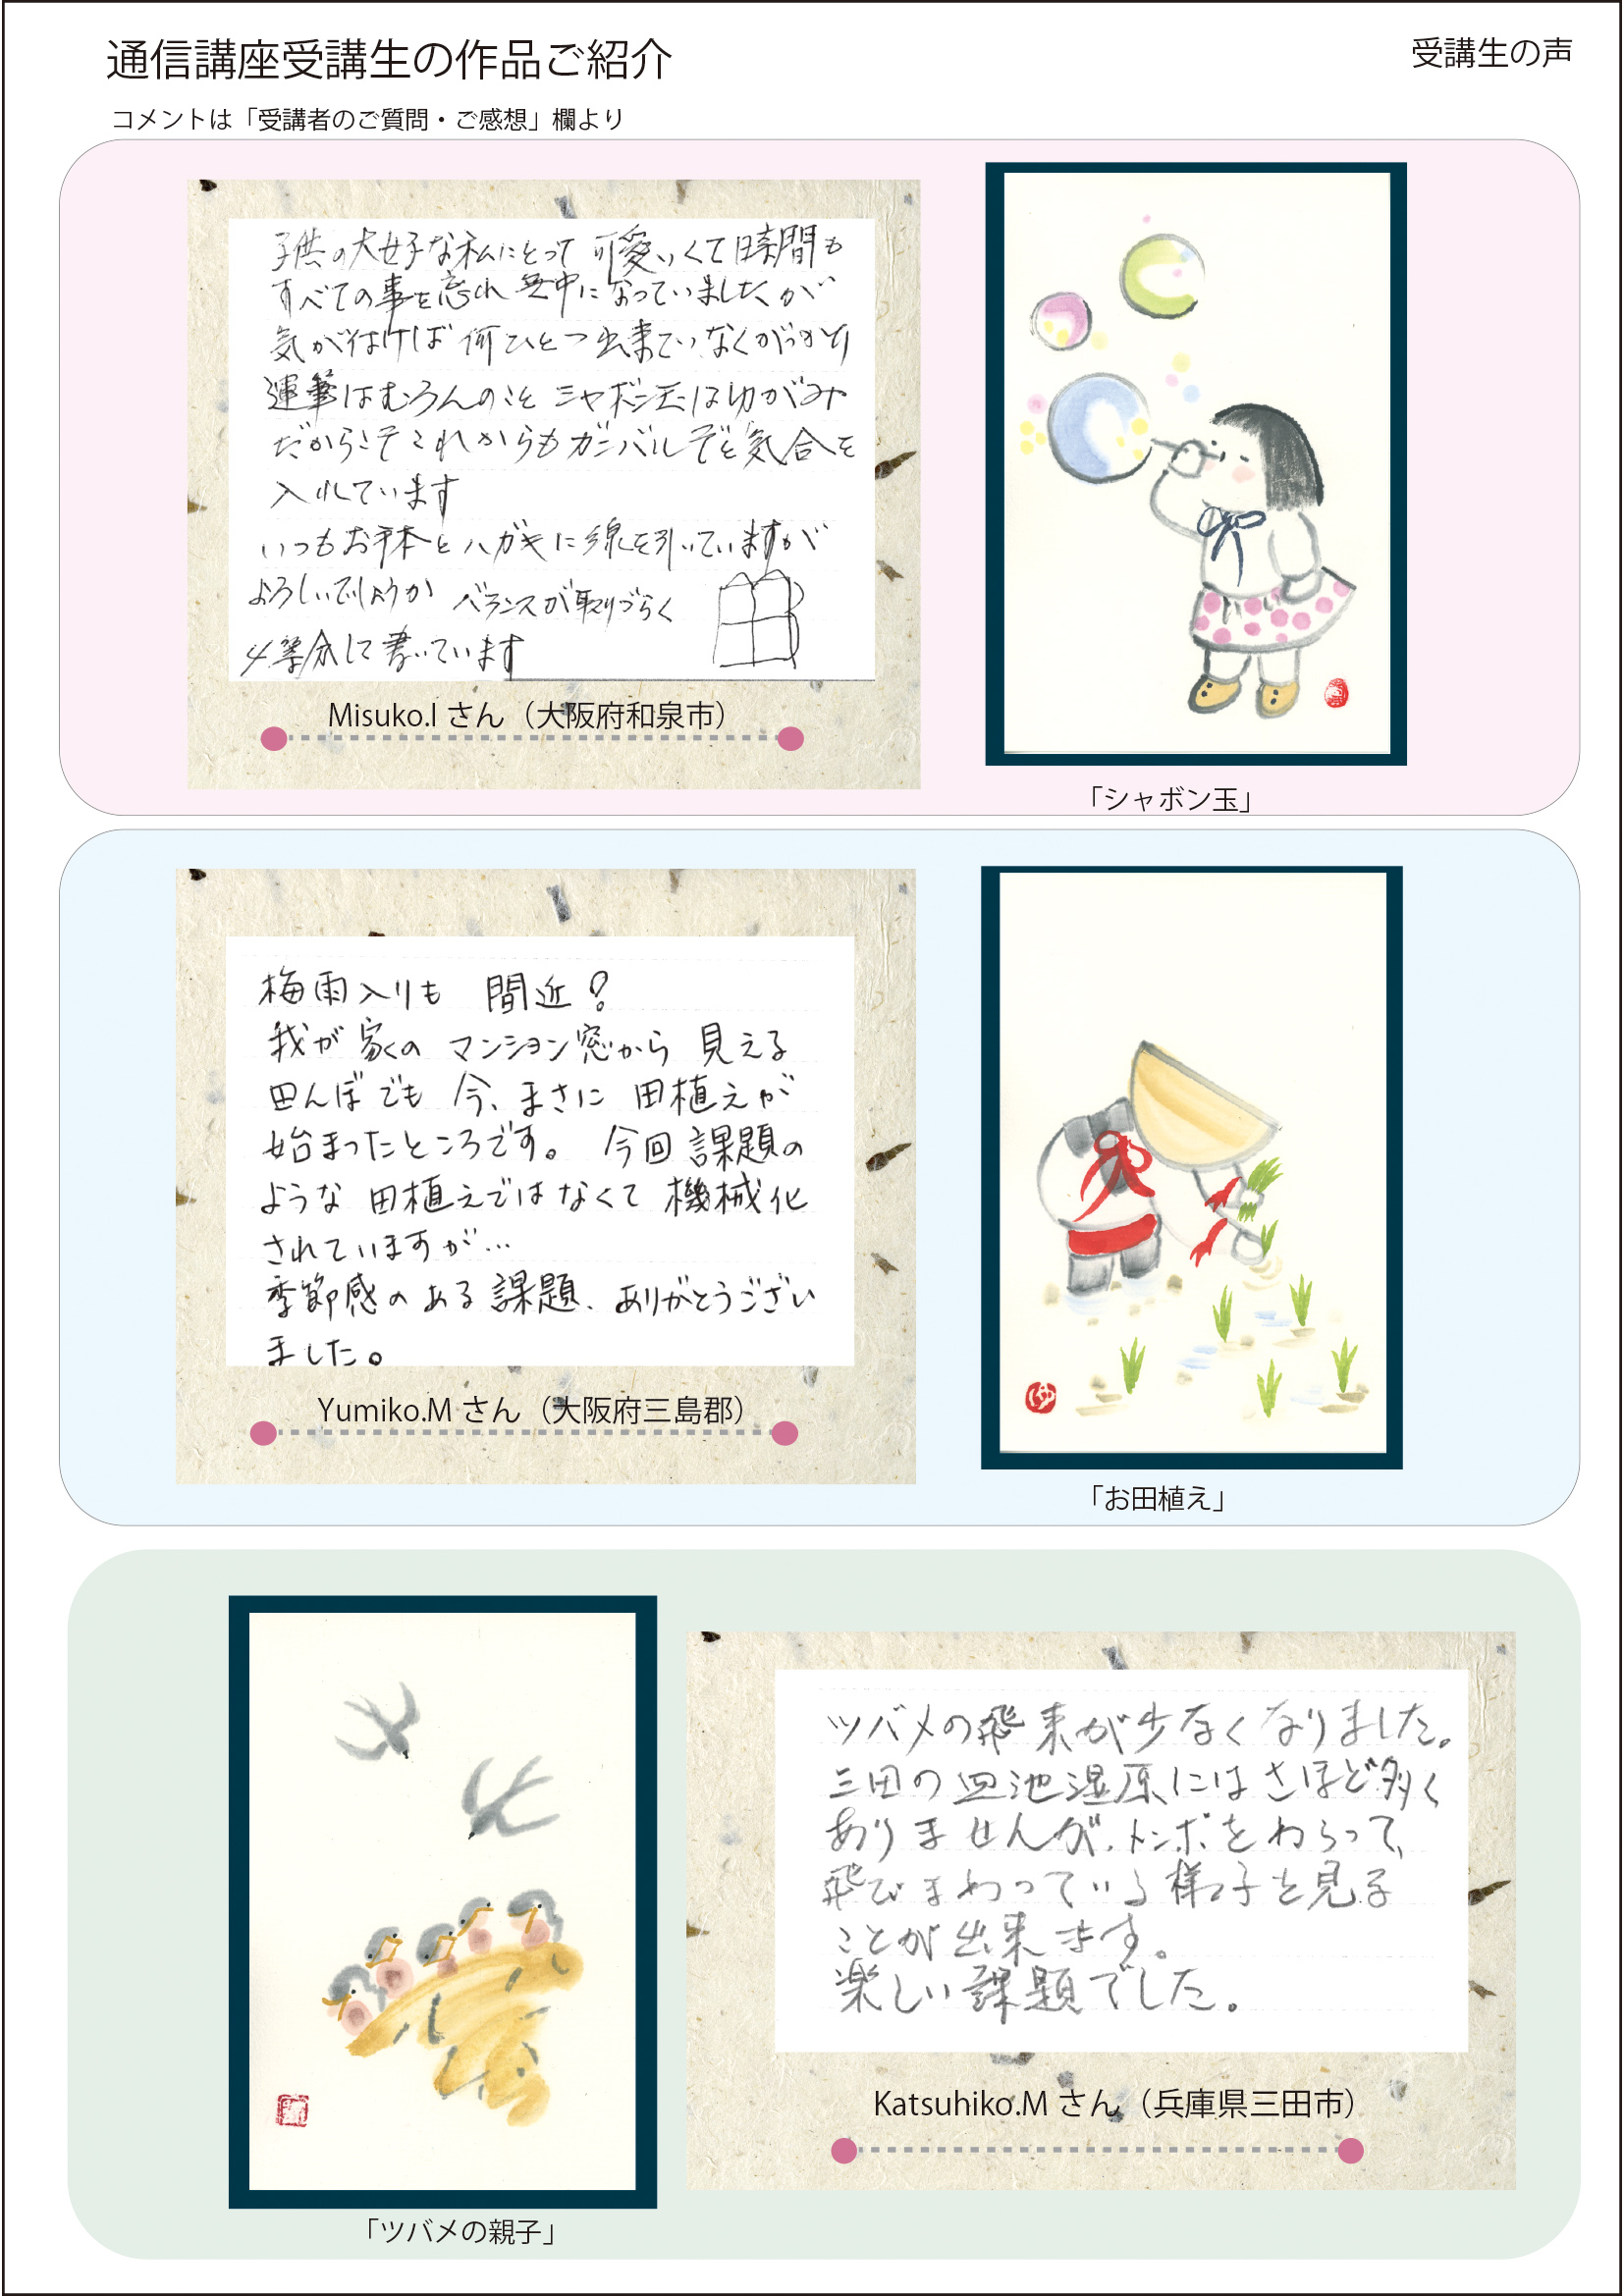 通信講座受講生の作品ご紹介
受講生の声
コメントは「受講者のご質問・ご感想」欄より
子供の大好きな私にとって 可愛いくて時間も
すべての事を忘れ 夢中になっていましたが
気が付けば 何ひとつ出来ていなくがっかり
運筆はむろんのこと シャボン玉はゆがみや
だからこそこれからもガンバルぞと気合を
入れています
いつもお手本とハガキに線を引いていますが
よろしいでしょうか バランスが取りづらく
4等分して書いています
Misuko.I さん（大阪府和泉市）
「シャボン玉」
梅雨入りも 間近？
我が家の マンション窓から 見える
田んぼでも 今、まさに 田植えが
始まったところです。 今回課題の
ような 田植えではなくて 機械化
されていますが…
季節感のある課題、ありがとうござい
ました。
Yumiko.M さん（大阪府三島郡）
「お田植え」
ツバメの飛来が少なくなりました。
三田の皿池湿原にはさほど多く
ありませんが、トンボをねらって、
飛びまわっている様子を見る
ことが出来ます。
楽しい課題でした。
Katsuhiko.M さん（兵庫県三田市）
「ツバメの親子」